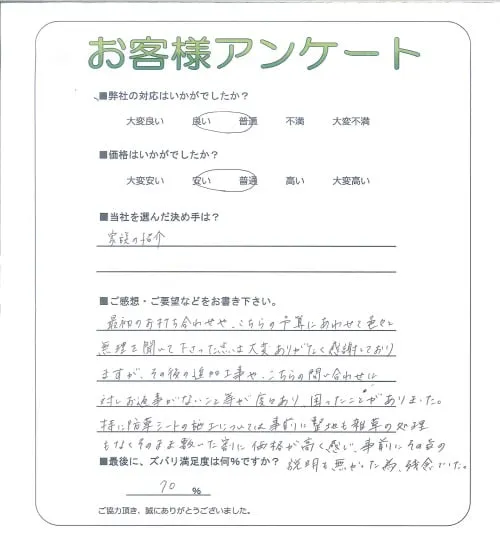 お客様アンケート
■弊社の対応はいかがでしたか？
大変良い 良い 普通 不満 大変不満
■価格はいかがでしたか？
大変安い 安い 普通 高い 大変高い
■当社を選んだ決め手は？
家族の紹介
■ご感想・ご要望などをお書き下さい。
最初のお打ち合わせや、こちらの予算にあわせて色々と
無理を聞いて下さった点は大変ありがたく感謝しており
ますが、その後の追加工事や、こちらの問い合わせに
対しお返事がないこと等が度々あり、困ったことがありました。
特に防草シートの施工については事前に整地も雑草の処理
もなくそのまま敷いた割に価格が高く感じ、事前にその点の
説明も無かった為、残念でした。
■最後に、ズバリ満足度は何%ですか？
70 %
ご協力頂き、誠にありがとうございました。